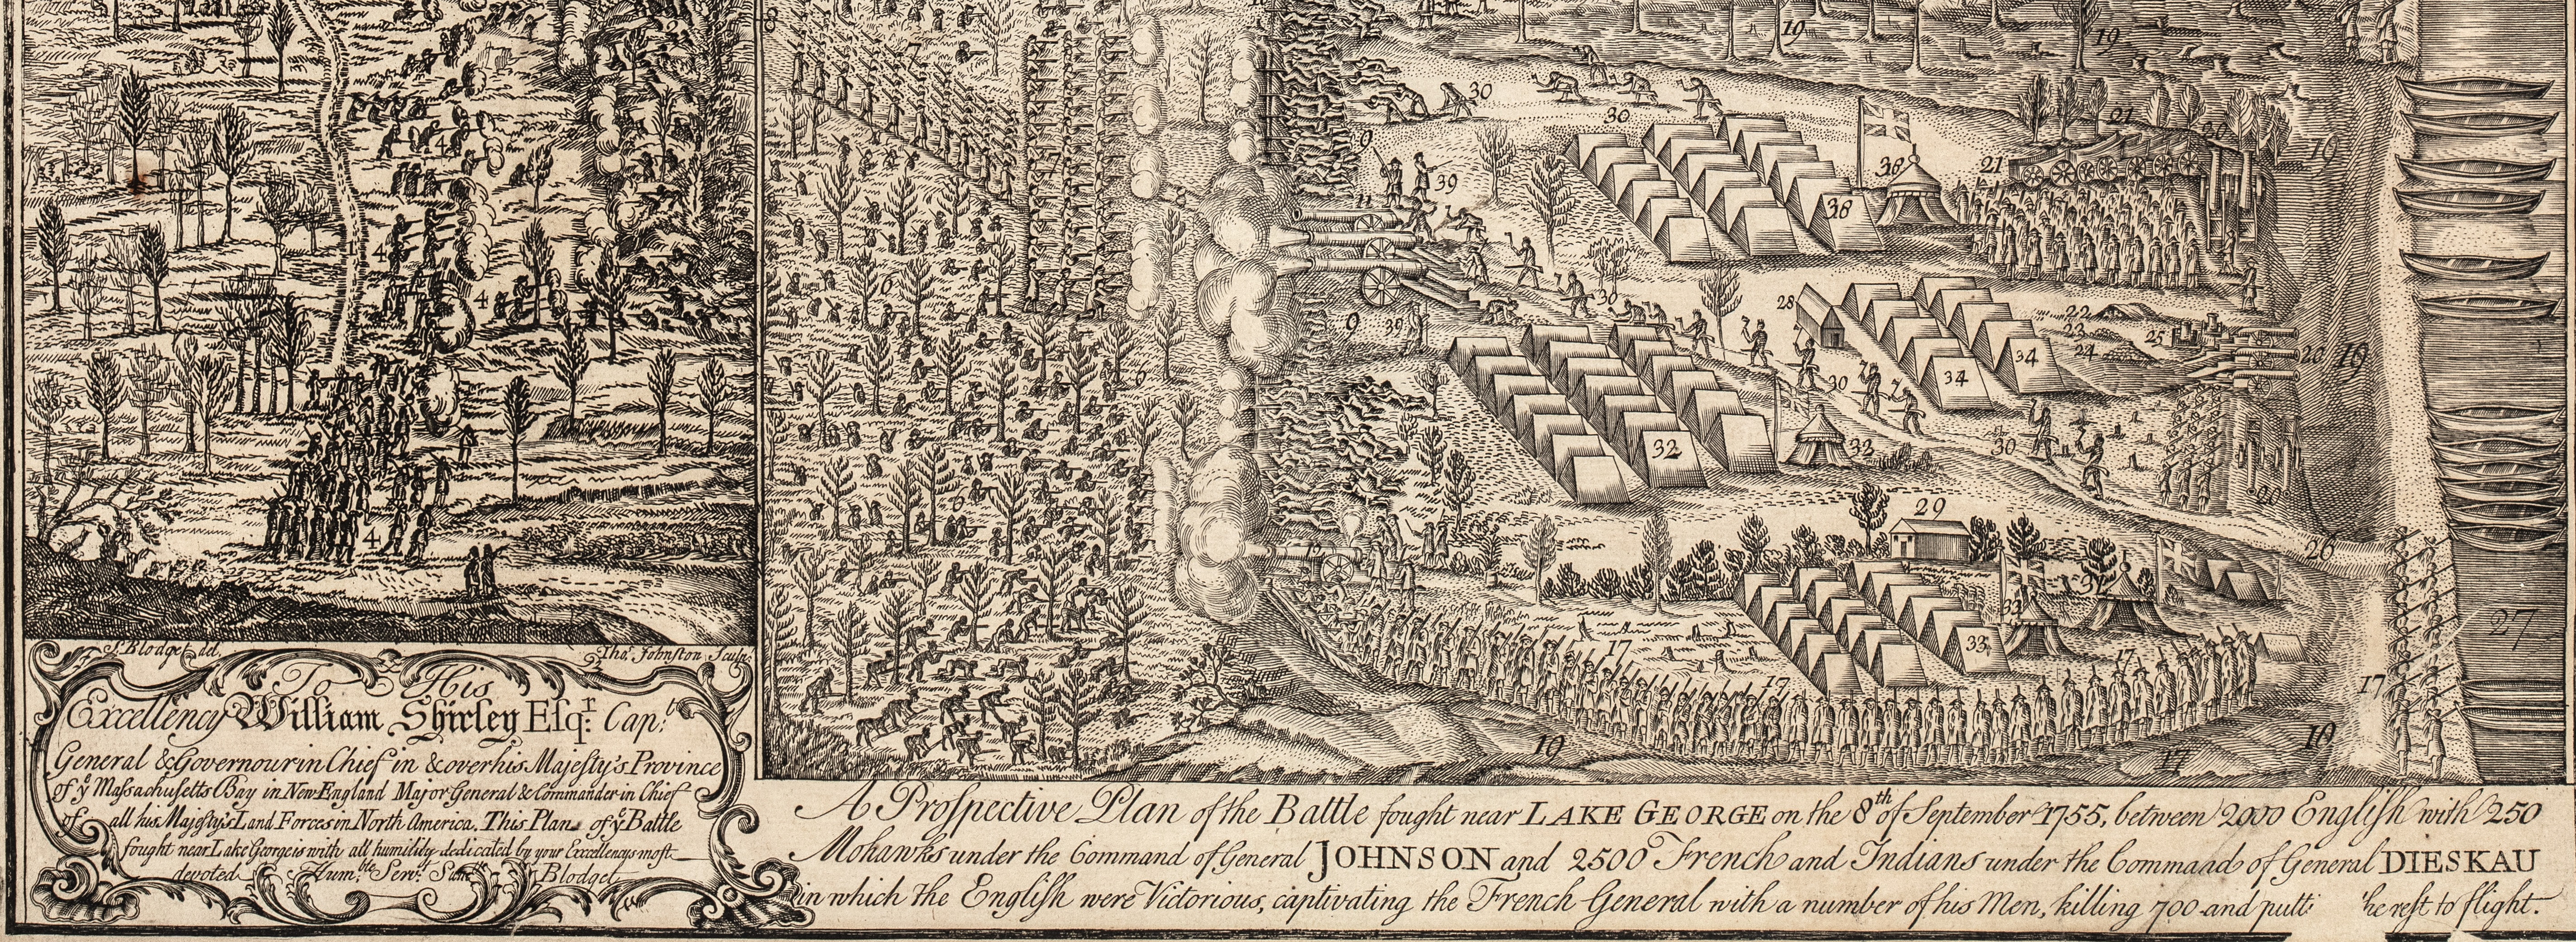 S. Blodget del.
Thos. Johnston Sculp.
To His
Excellency William Shirley Esqr. Capt.
General & Governour in Chief in & over his Majesty's Province
of ye Massachusetts Bay in New England Major General & Commander in Chief
of all his Majesty's Land Forces in North America. This Plan of ye Battle
fought near Lake George is with all humility dedicated by your Excellencys most
devoted Humble Servt. Blodget
A Prospective Plan of the Battle fought near LAKE GEORGE on the 8th of September 1755, between 2000 English with 250
Mohawks under the Command of General JOHNSON and 2500 French and Indians under the Command of General DIESKAU
in which the English were Victorious, captivating the French General with a number of his Men, killing 700 and putt he rest to flight.
4
4
4
4
7
7
8
6
6
6
9
9
11
12
39
39
30
30
30
30
30
19
19
19
19
19
19
38
38
21
21
20
20
20
22
23
24
25
28
34
34
32
32
29
26
27
33
33
31
17
17
17
17
17